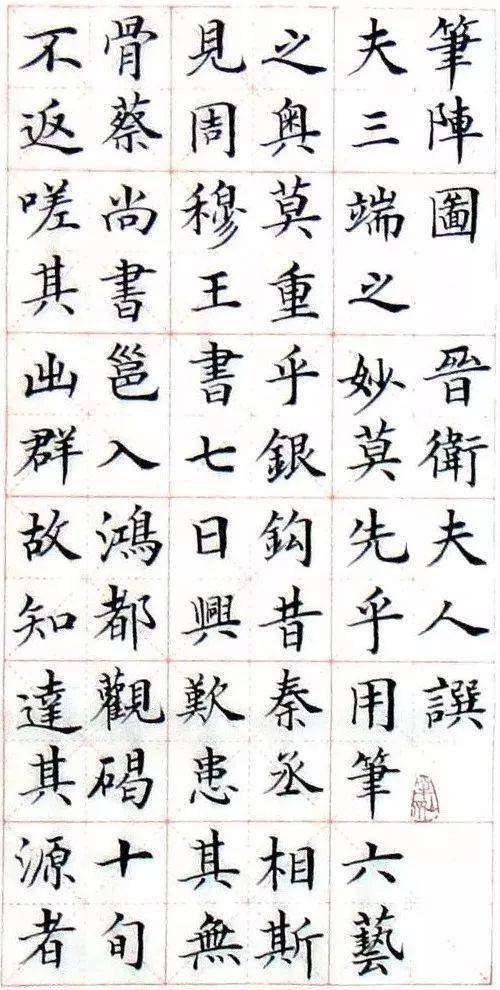 筆陣圖　晉衛夫人譔
夫三端之妙莫先乎用筆六藝
之奧莫重乎銀鈎昔秦丞相斯
見周穆王書七日興歎患其無
骨蔡尚書邕入鴻都觀碣十旬
不返嗟其出群故知達其源者